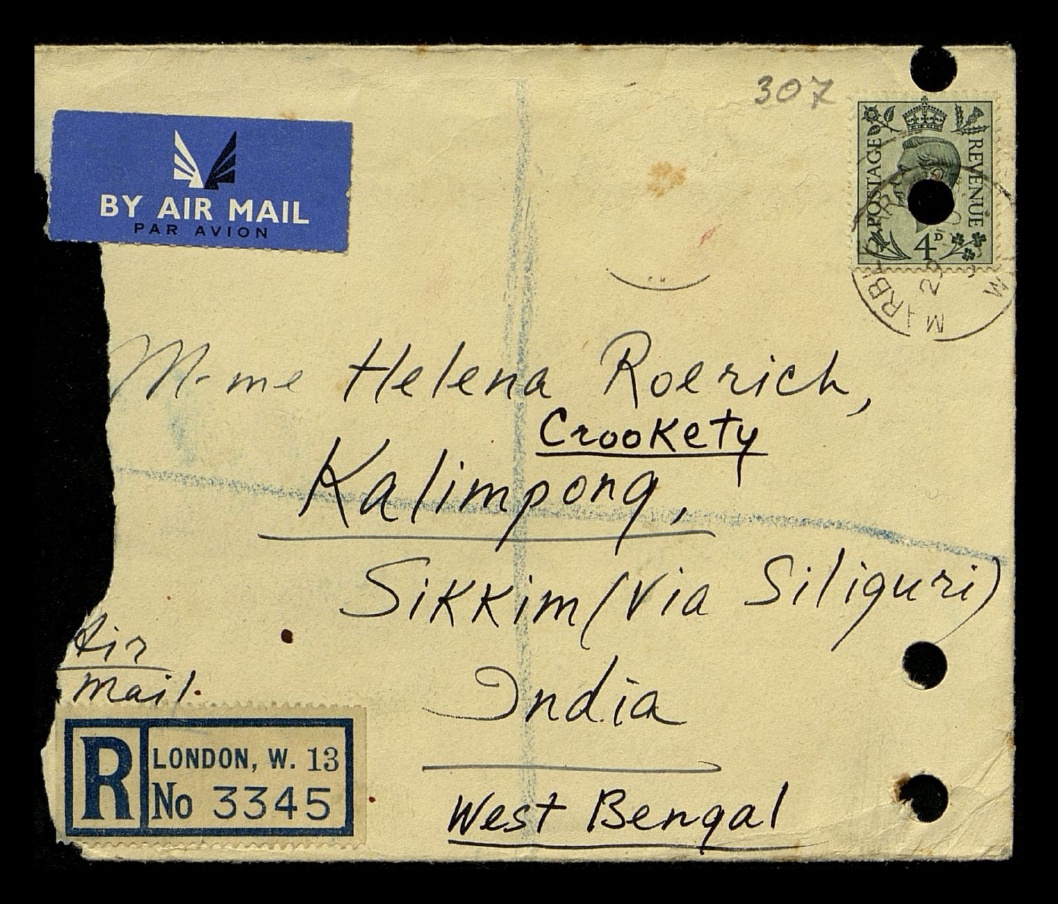 307
BY AIR MAIL
PAR AVION
POSTAGE
REVENUE
4D
M-me Helena Roerich,
Crookety
Kalimpong,
Sikkim (via Siliguri)
India
West Bengal
Air
Mail.
R
LONDON, W. 13
No 3345